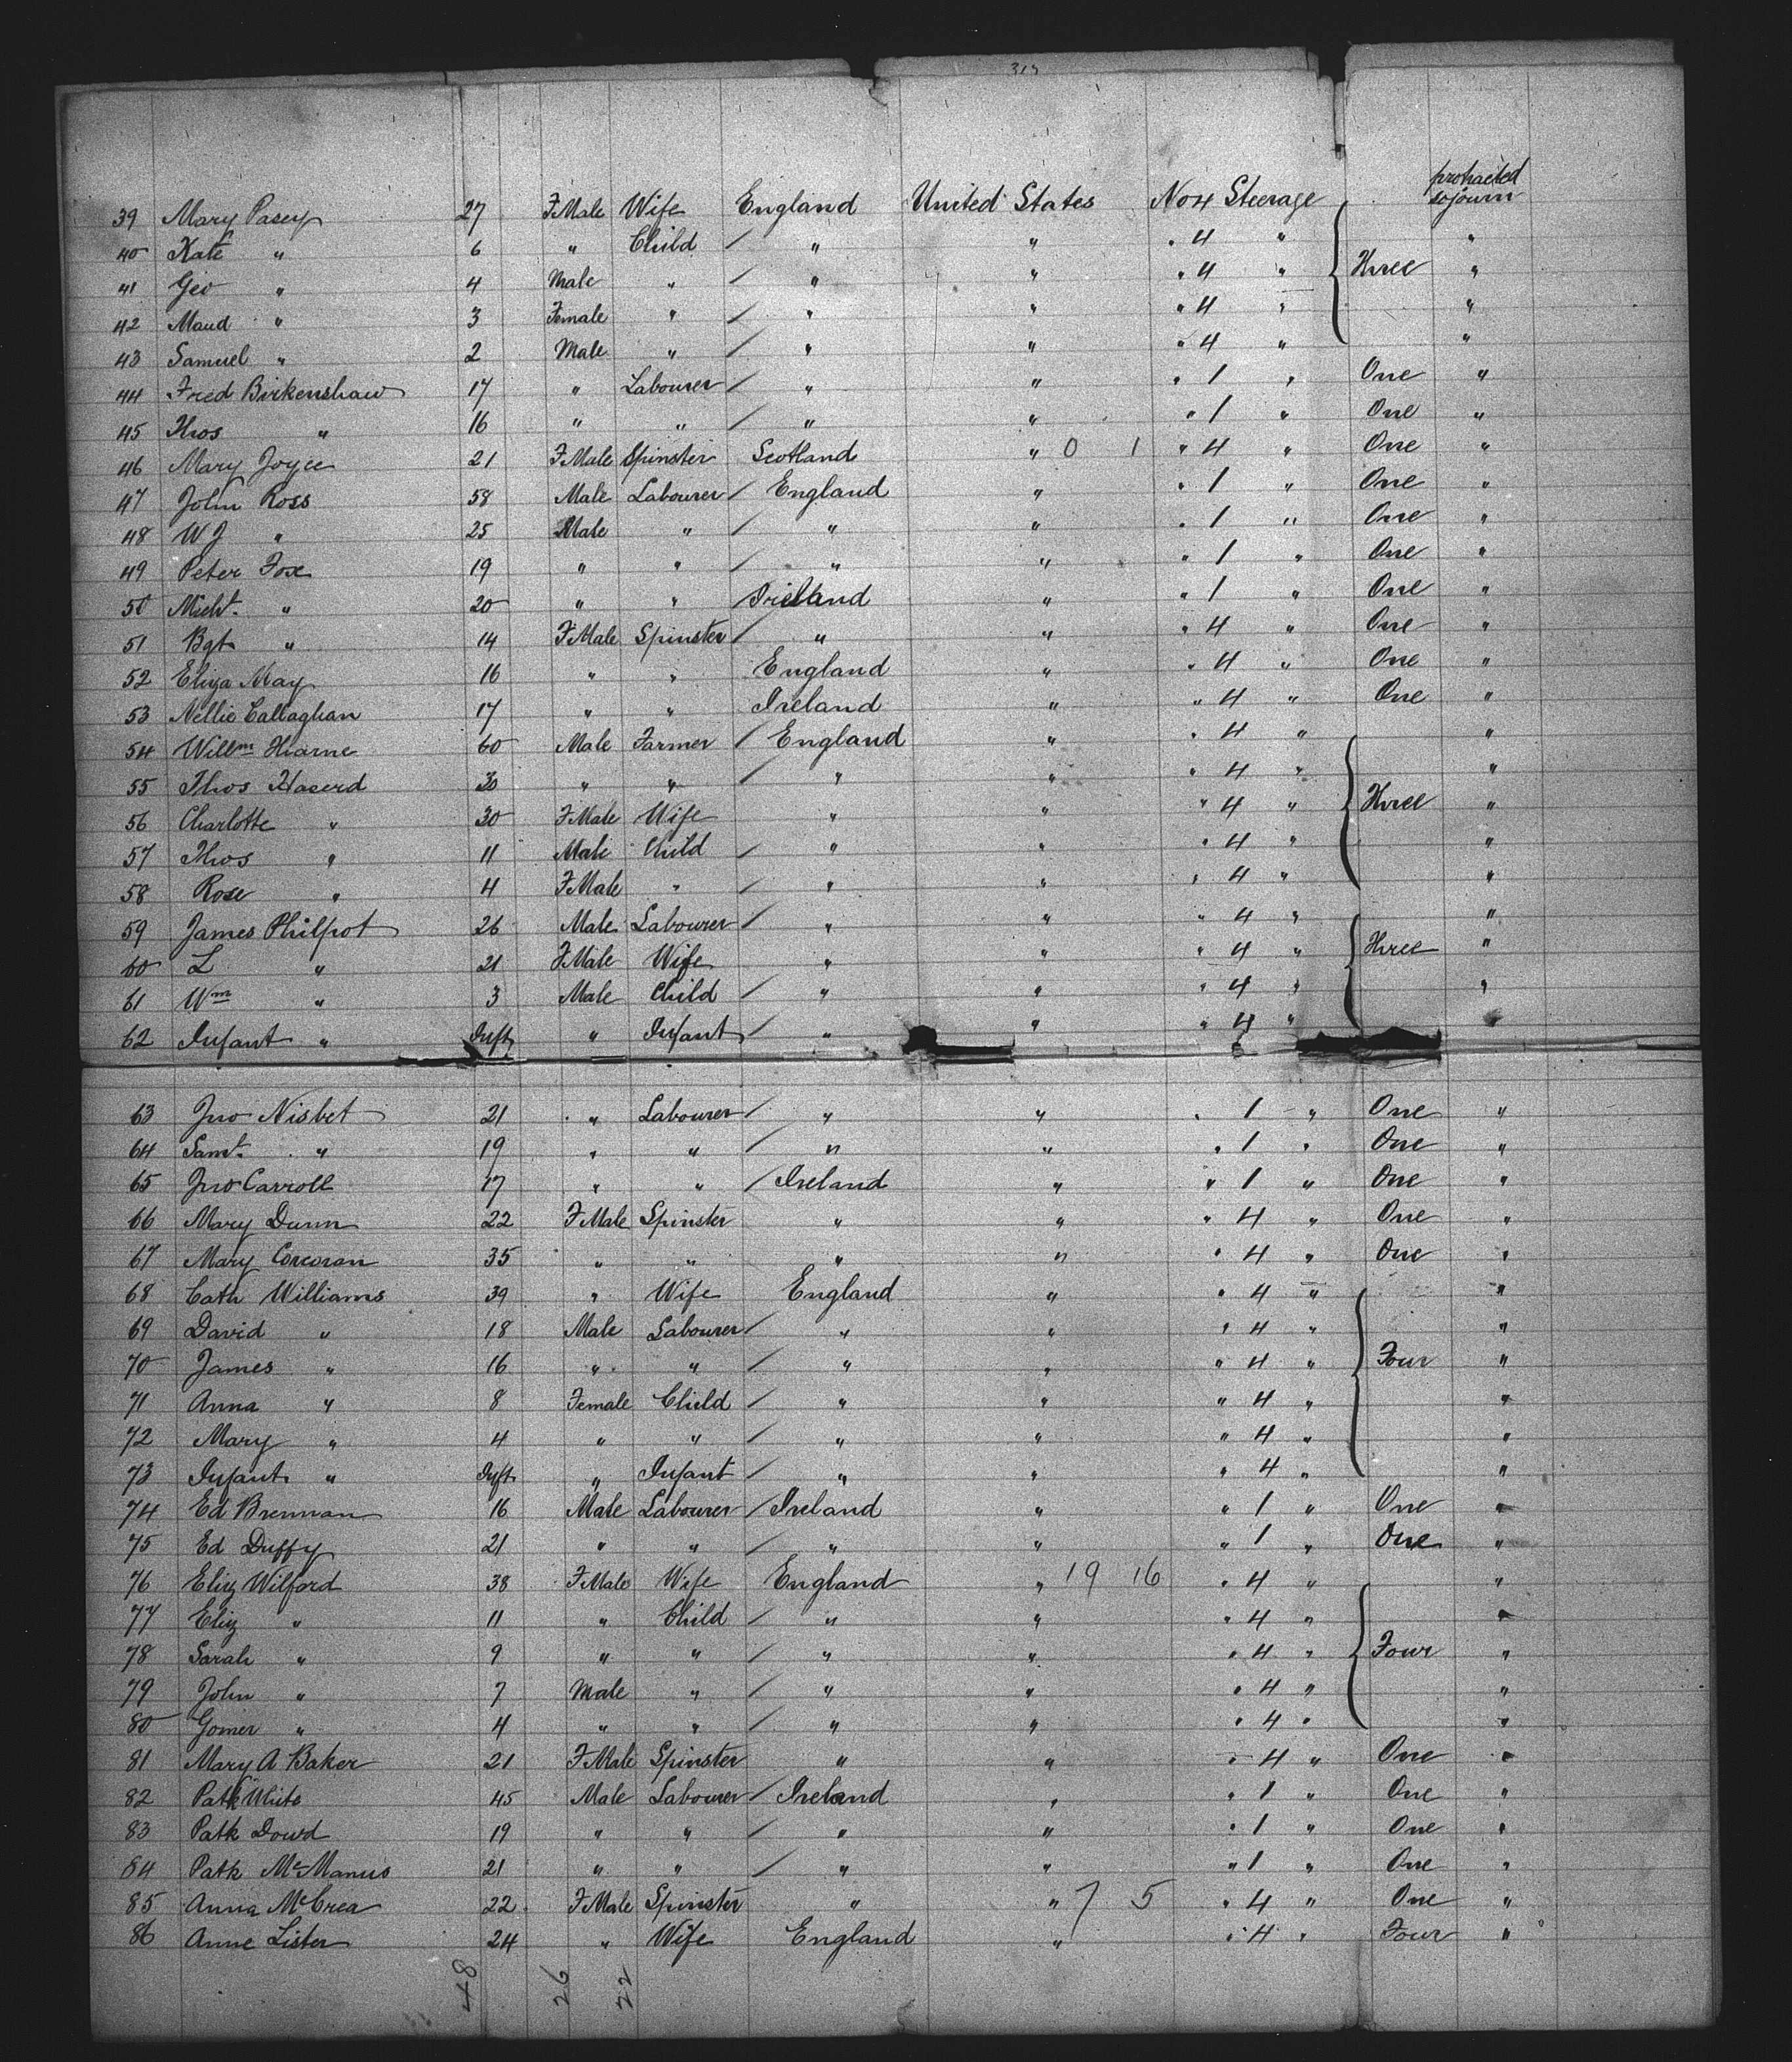 protracted
39 Mary Pasey 27 FMale Wife England United States No 4 Steerage sojourn
40 Kate " 6 " Child / " " " 4 " "
41 Geo " 4 Male " / " " " 4 " Three "
42 Maud " 3 Female " / " " " 4 " "
43 Samuel " 2 Male " / " " " 4 " "
44 Fred Birkenshaw 17 " Labourer / " " " 1 " One "
45 Thos " 16 " " / " " " 1 " One "
46 Mary Joyce 21 FMale Spinster Scotland " 0 1 " 4 " One "
47 John Ross 58 Male Labourer / England " " 1 " One "
48 W J " 25 Male " / " " " 1 " One "
49 Peter Fox 19 " " / " " " 1 " One "
50 Michl. " 20 " " / Ireland " " 1 " One "
51 Bgt " 14 FMale Spinster / " " " 4 " One "
52 Eliza May 16 " " England " " 4 " One "
53 Nellie Callaghan 17 " " Ireland " " 4 " One "
54 Willm Hearne 60 Male Farmer / England " " 4 " "
55 Thos Haserd 30 " " / " " " 4 " "
56 Charlotte " 30 FMale Wife " " " 4 " Three "
57 Thos " 11 Male Child / " " " 4 " "
58 Rose " 4 FMale " / " " " 4 " "
59 James Philpot 26 Male Labourer / " " " 4 " "
60 L " 21 FMale Wife " " " 4 " Three "
61 Wm " 3 Male Child / " " " 4 " "
62 Infant " Inft " Infant / " " " 4 " "
63 Jno Nisbet 21 " Labourer / " " " 1 " One "
64 Saml. " 19 " " / " " " 1 " One "
65 Jno Carroll 17 " " / Ireland " " 1 " One "
66 Mary Dunn 22 FMale Spinster " " " 4 " One "
67 Mary Corcoran 35 " " " " " 4 " One "
68 Cath Williams 39 " Wife England " " 4 " "
69 David " 18 Male Labourer / " " " 4 " "
70 James " 16 " " / " " " 4 " Four "
71 Anna " 8 Female Child / " " " 4 " "
72 Mary " 4 " " / " " " 4 " "
73 Infant " Inft " Infant / " " " 4 " "
74 Ed Brennan 16 Male Labourer / Ireland " " 1 " One "
75 Ed Duffy 21 " " / " " " 1 " One "
76 Eliz Wilford 38 FMale Wife England " 19 16 " 4 " "
77 Eliz " 11 " Child / " " " 4 " "
78 Sarah " 9 " " / " " " 4 " Four "
79 John " 7 Male " / " " " 4 " "
80 Gomer " 4 " " / " " " 4 " "
81 Mary A Baker 21 FMale Spinster " " " 4 " One "
82 Patk White 45 Male Labourer / Ireland " " 1 " One "
83 Patk Dowd 19 " " / " " " 1 " One "
84 Patk McManus 21 " " / " " " 1 " One "
85 Anna McCrea 22 FMale Spinster " " 7 5 " 4 " One "
86 Anne Lister 24 " Wife England " " 4 " Four "
48 26 22